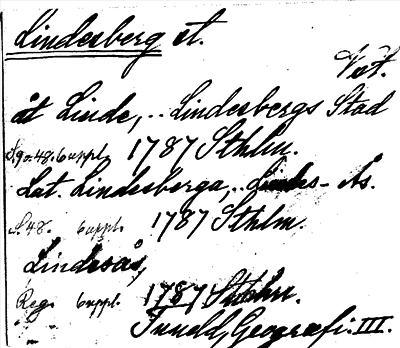 Lindesberg st.
Vst.
åt Linde, .. Lindesbergs Stad
S. 90. 48. 6 uppl. 1787 Sthlm.
Lat. Lindesberga, .. Lindes-Ås.
S. 48. 6 uppl. 1787 Sthlm.
Lindesås,
Reg. 6 uppl. 1787 Sthlm.
Tuneld, Geografi. III.